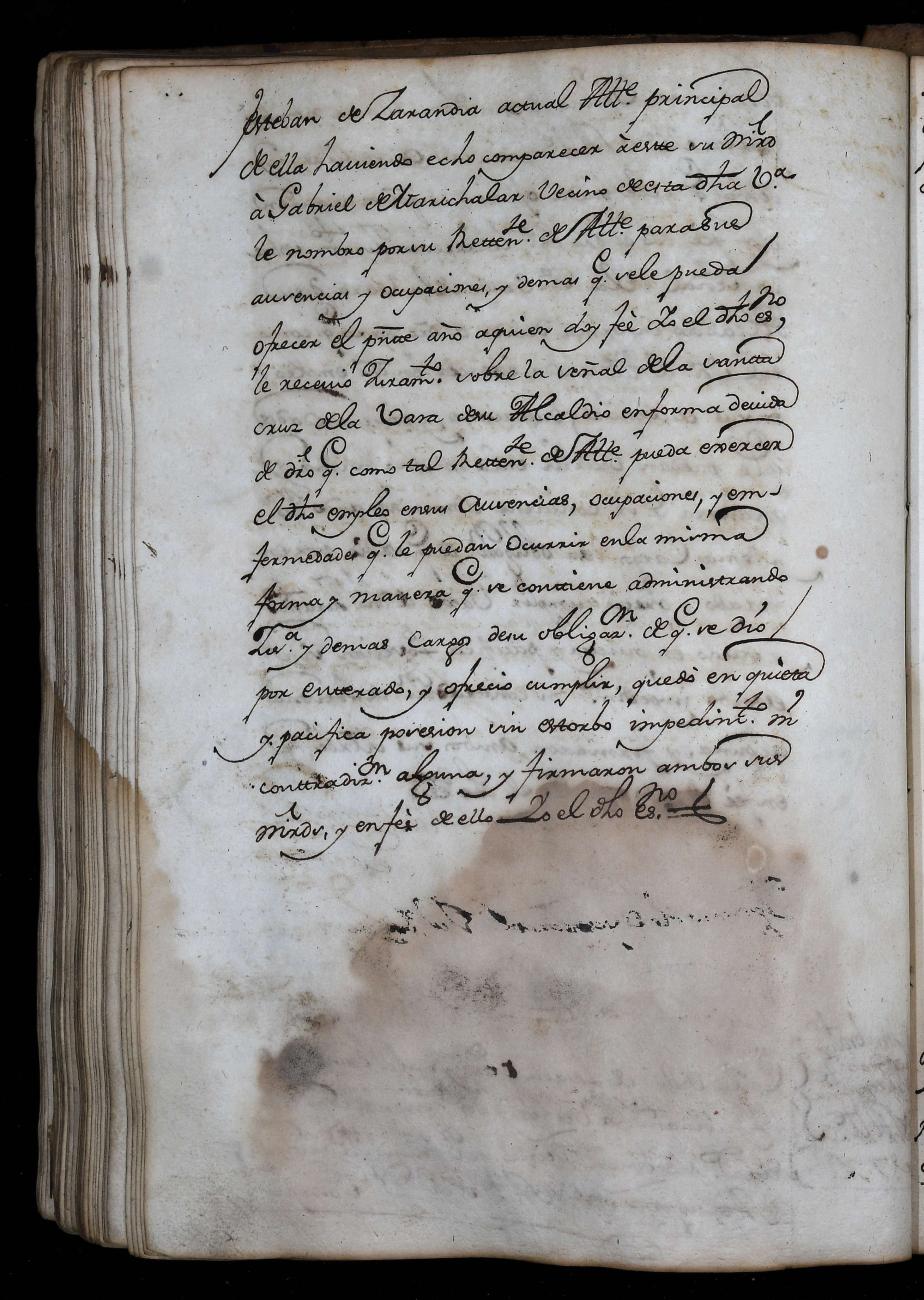 Esteban de Zarandia actual Alle. principal
de ella haviendo echo comparecer à este su Mrd
à Gabriel de Marichalar Vecino de esta dha Va.
le nombro por su Retten.te de Alle. para sus
ausencias y ocupaciones, y demas q. se le pueda
ofrecer èl pñte año aquien doy feè Yo el dho esno,
le recevio Juram.to sobre la señal de la santa
cruz de la Vara de su Alcaldio en forma devida
de dro q. como tal Retten.te de Alle. pueda exercer
el dho empleo en sus Ausencias, ocupaciones, y en-
fermedades q. le puedan Ocurrir en la misma
forma y manera q. se contiene administrando
Jus.a y demas Cargos de su obligaz.on de q. se diò
por enterado, y ofrecio cumplir, quedò en quieta
y pacifica posesion sin estorbo impedim.to ni
conttradiz.on alguna, y firmaron ambos sus
Mrds, y en feè de ello Yo el dho es.no